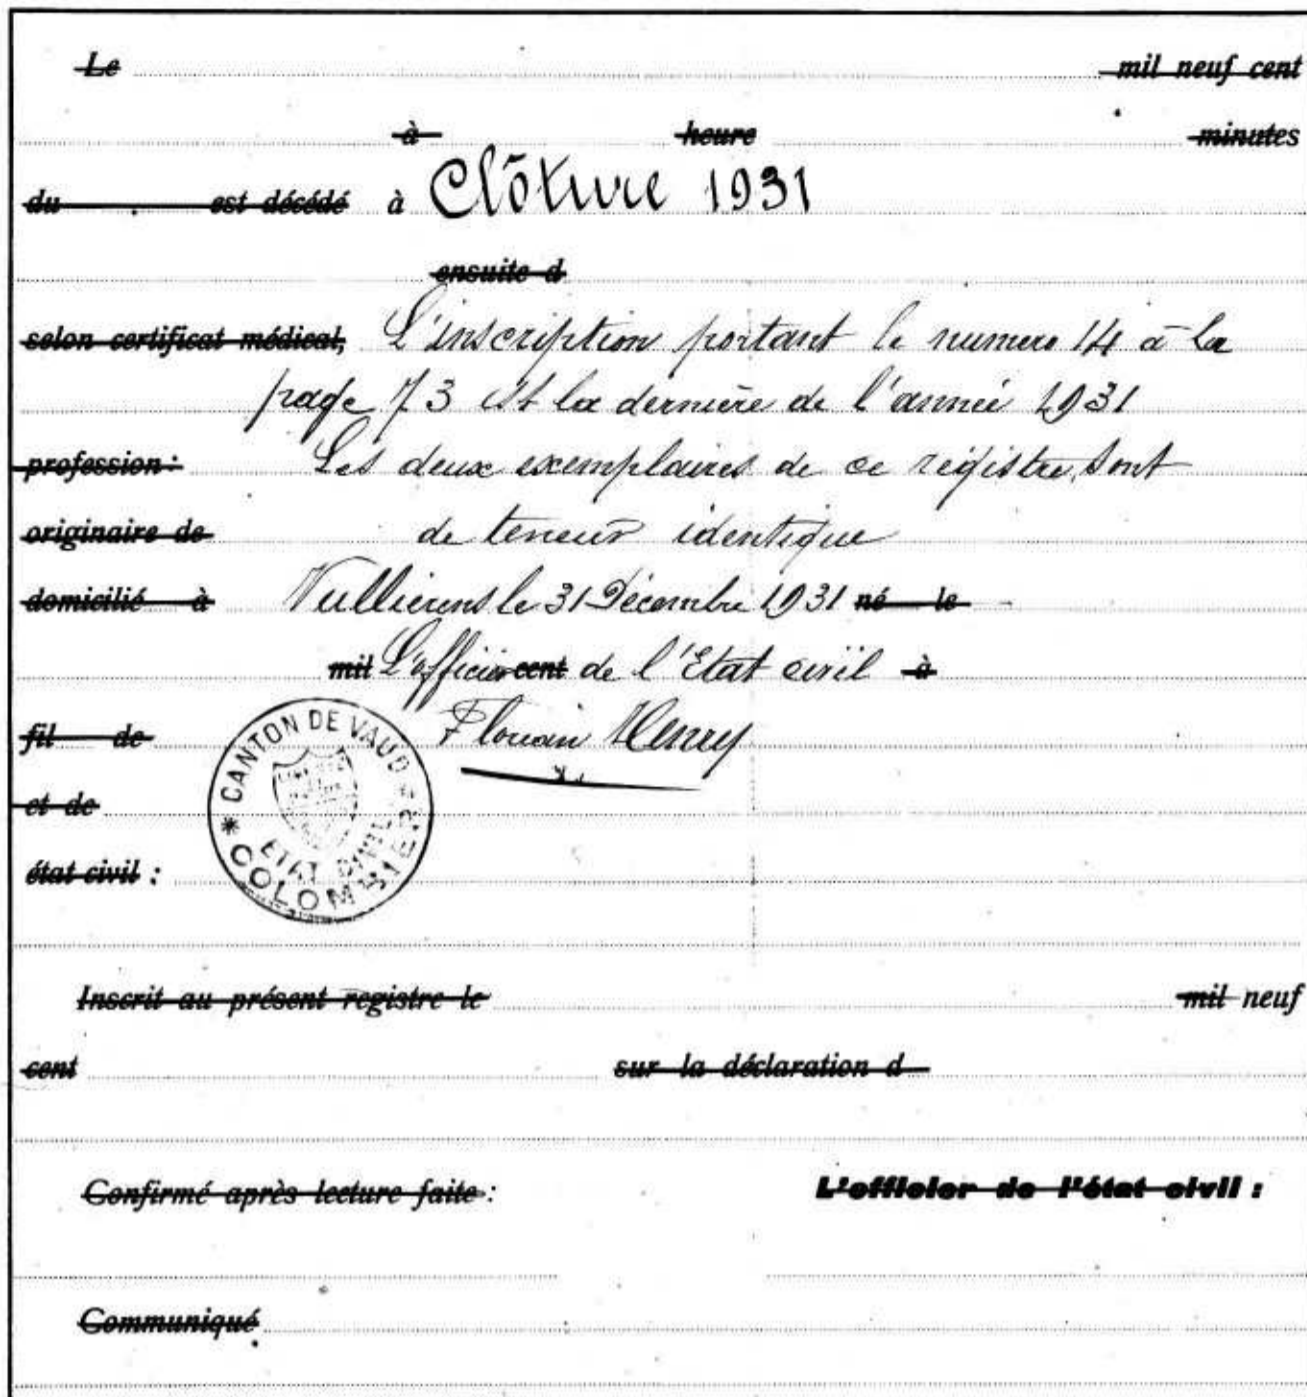 Le mil neuf cent
à heure minutes
du est décédé à Clôture 1931
ensuite d
selon certificat médical, L'inscription portant le numero 14 à la
page 73 est la dernière de l'année 1931
profession : Les deux exemplaires de ce régistre sont
originaire de de teneur identique
domicilié à Vullierens le 31 Décembre 1931 né le
mil L'officier cent de l'Etat civil à
fil de Henry
CANTON DE VAUD
ETAT CIVIL
COLOMBIER
et de
état civil :
Inscrit au présent registre le mil neuf
cent sur la déclaration d
Confirmé après lecture faite : L'officier de l'état civil :
Communiqué